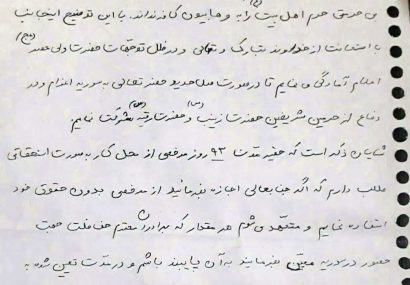 حریق حرم اهل بیت را به وهابیون کافر نداند. با این توضیح اینجانب
با استعانت از خداوند تبارک و تعالی و در ظل توجهات حضرت ولی عصر (عج)
اعلام آمادگی می نمایم تا در صورت صلاحدید حضرتعالی به سوریه اعزام و در
دفاع از حرمین شریفین حضرت زینب (س) و حضرت رقیه (س) شرکت نمایم.
شایان ذکر است که حقیر مدت ۹۳ روز مرخصی از محل کار به صورت استحقاقی
طلب دارم که اگر جنابعالی اجازه بفرمائید از مرخصی بدون حقوق خود
استفاده نمایم و متعهد می شوم هر مقدار که برادران معتبر مدت جهت
حضور در سوریه معین بفرمایند به آن پایبند باشم و در مدت تعیین شده به